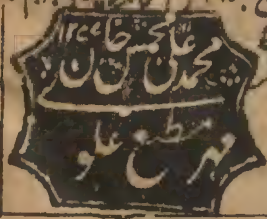 محمد علی بخش خان ۱۲۷۷
مهر مطبع علوی